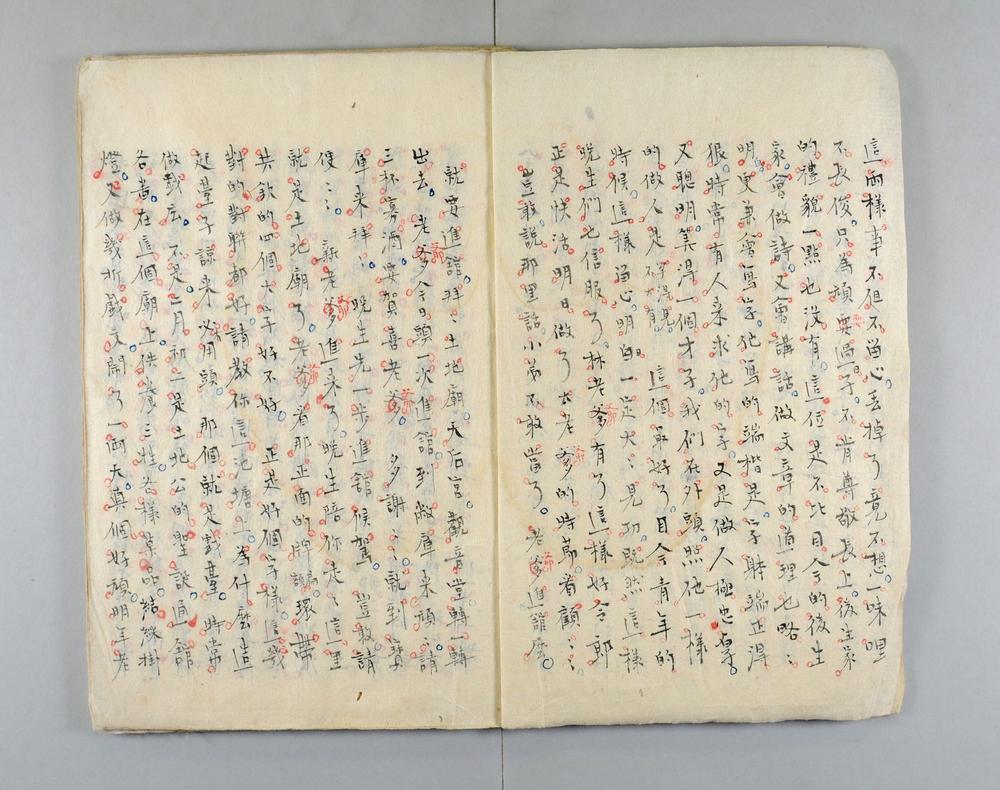 這兩樣事不但不當心丟掉了竟不想一味哩
不長俊只為頑耍過日子不肯尊敬長上後生家
的禮貌一點也沒有這位是不比目今的後生
家會做詩又會講話做文章的道理也略〻
明更兼會寫字他寫的端楷是字體端正得
狠時常有人來求他的字又是做人極忠厚
又聰明算得一個才子我們在外頭照他一樣
的做人是不大有這個最好了目今青年的
時候這樣當心明白一定大〻見功既然這樣
晚生們也信服了林老爹有了這樣好令郎
正是快活明日做了太老爹的時節看顧〻〻
豈敢說那里話小弟不敢當了老爹進舘麼
就要進舘拜〻土地廟天后宮觀音堂轉一轉
出去老爹今日頭一次進舘到敝庫來頑〻請
三杯喜酒要賀喜老爹多謝〻〻就到寶
庫來拜〻晚生先一步進舘候駕豈敢請
便〻〻新老爹進來了晚生陪你走〻這里
就是土地廟了老爹看那正面的牌匾環帶
共飲的四個大字好不好正是好個字樣這幾
對的對聯都好請教你這池塘上為什麼造
起臺子諒來必有用頭那個就是戲臺時常
做戲広不是二月初二是土地公的聖誕通舘
各番在這個廟上供養三牲各樣菓品結綵掛
燈又做幾折戲文鬧了一兩天真個好頑明年老